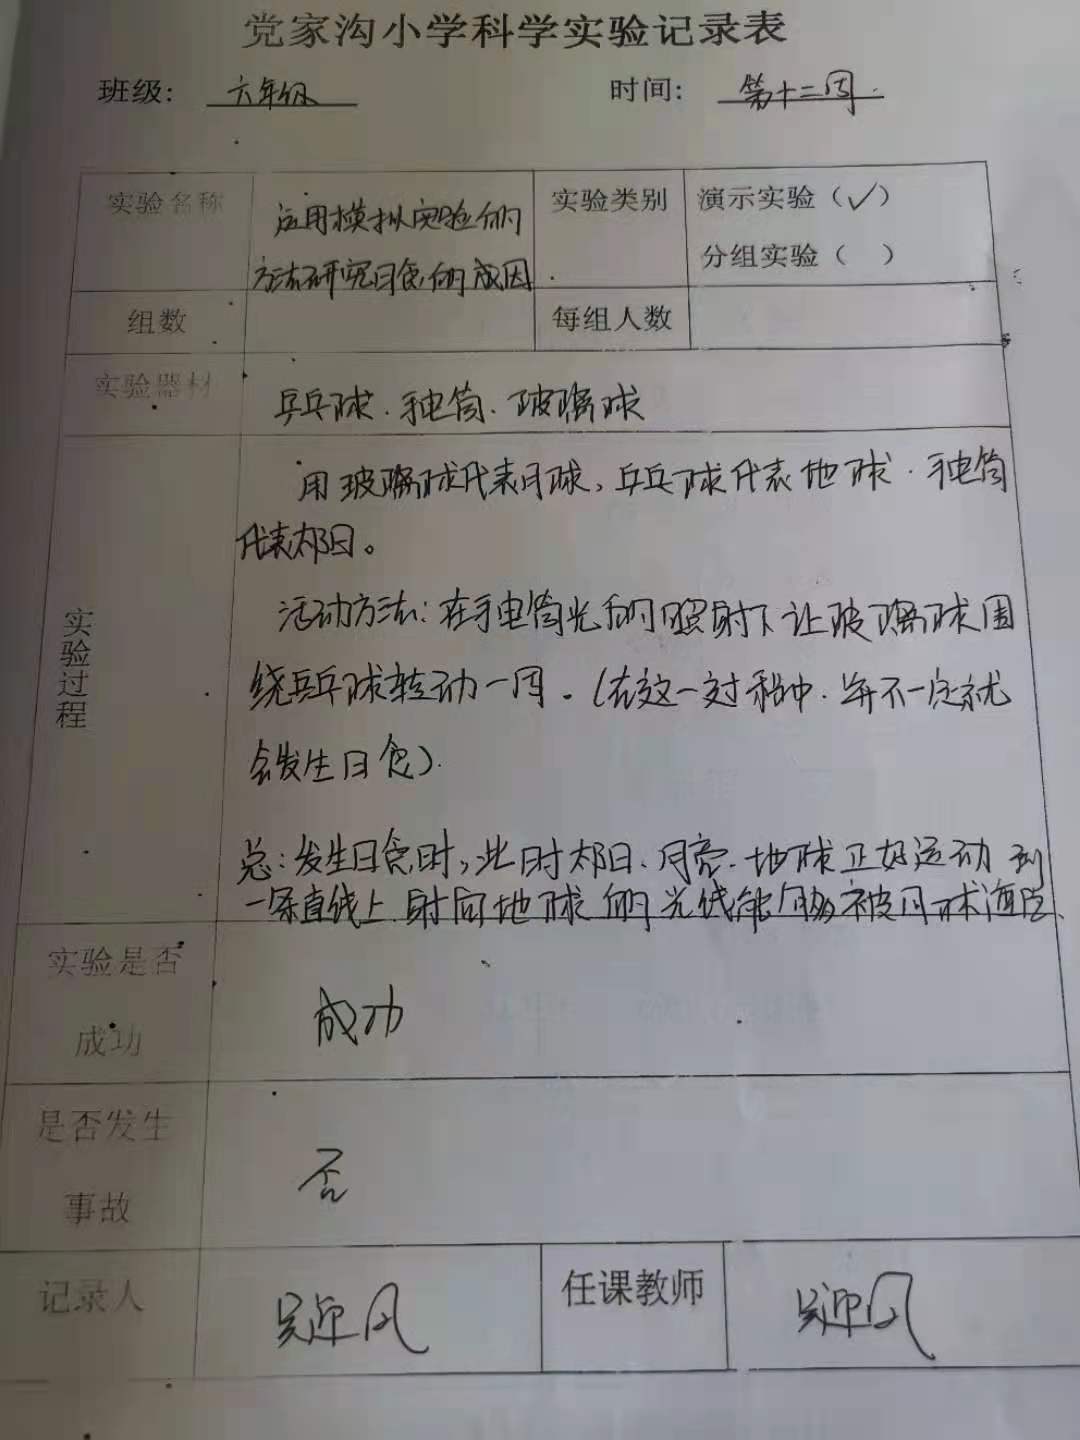 党家沟小学科学实验记录表
班级: 六年级 时间: 第十二周.
实验名称 运用模拟实验的 实验类别 演示实验（✓）
方法研究日食的成因 分组实验（ ）
组数 每组人数
实验器材 乒乓球. 手电筒. 玻璃球
实验过程
用玻璃球代表月球, 乒乓球代表地球. 手电筒
代表太阳。
活动方法: 在手电筒光的照射下让玻璃球围
绕乒乓球转动一周。(在这一过程中. 并不一定就
会发生日食).
总: 发生日食时, 此时太阳、月亮. 地球正好运动到
一条直线上. 射向地球的光线能够被月球遮住.
实验是否 成功
成功
是否发生 否
事故
记录人 吴迎风 任课教师 吴迎风